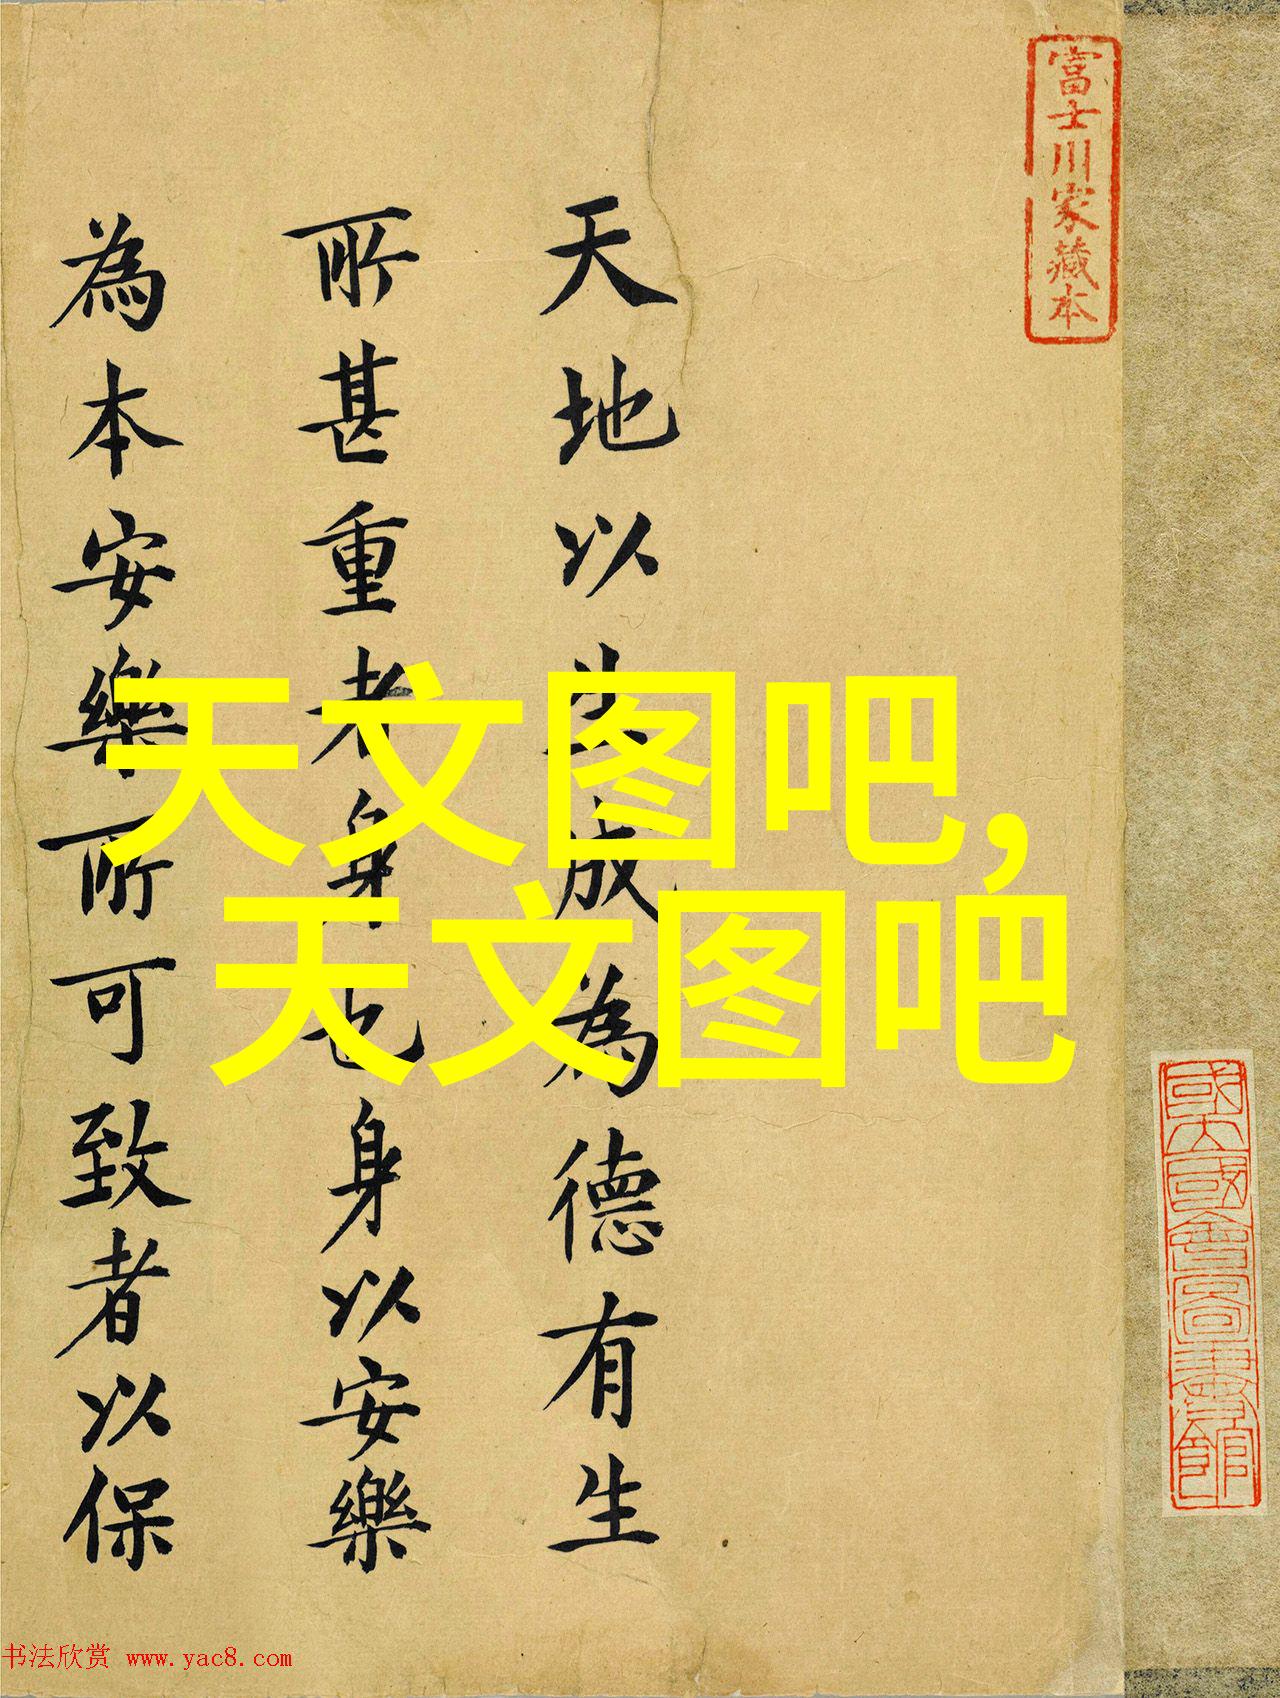 富士川家藏本
天地以生成為德有生
所甚重者身也身以安樂
為本安樂所可致者以保
天文图吧，
天文图吧
國立國會圖書館
书法欣赏 www.yac8.com